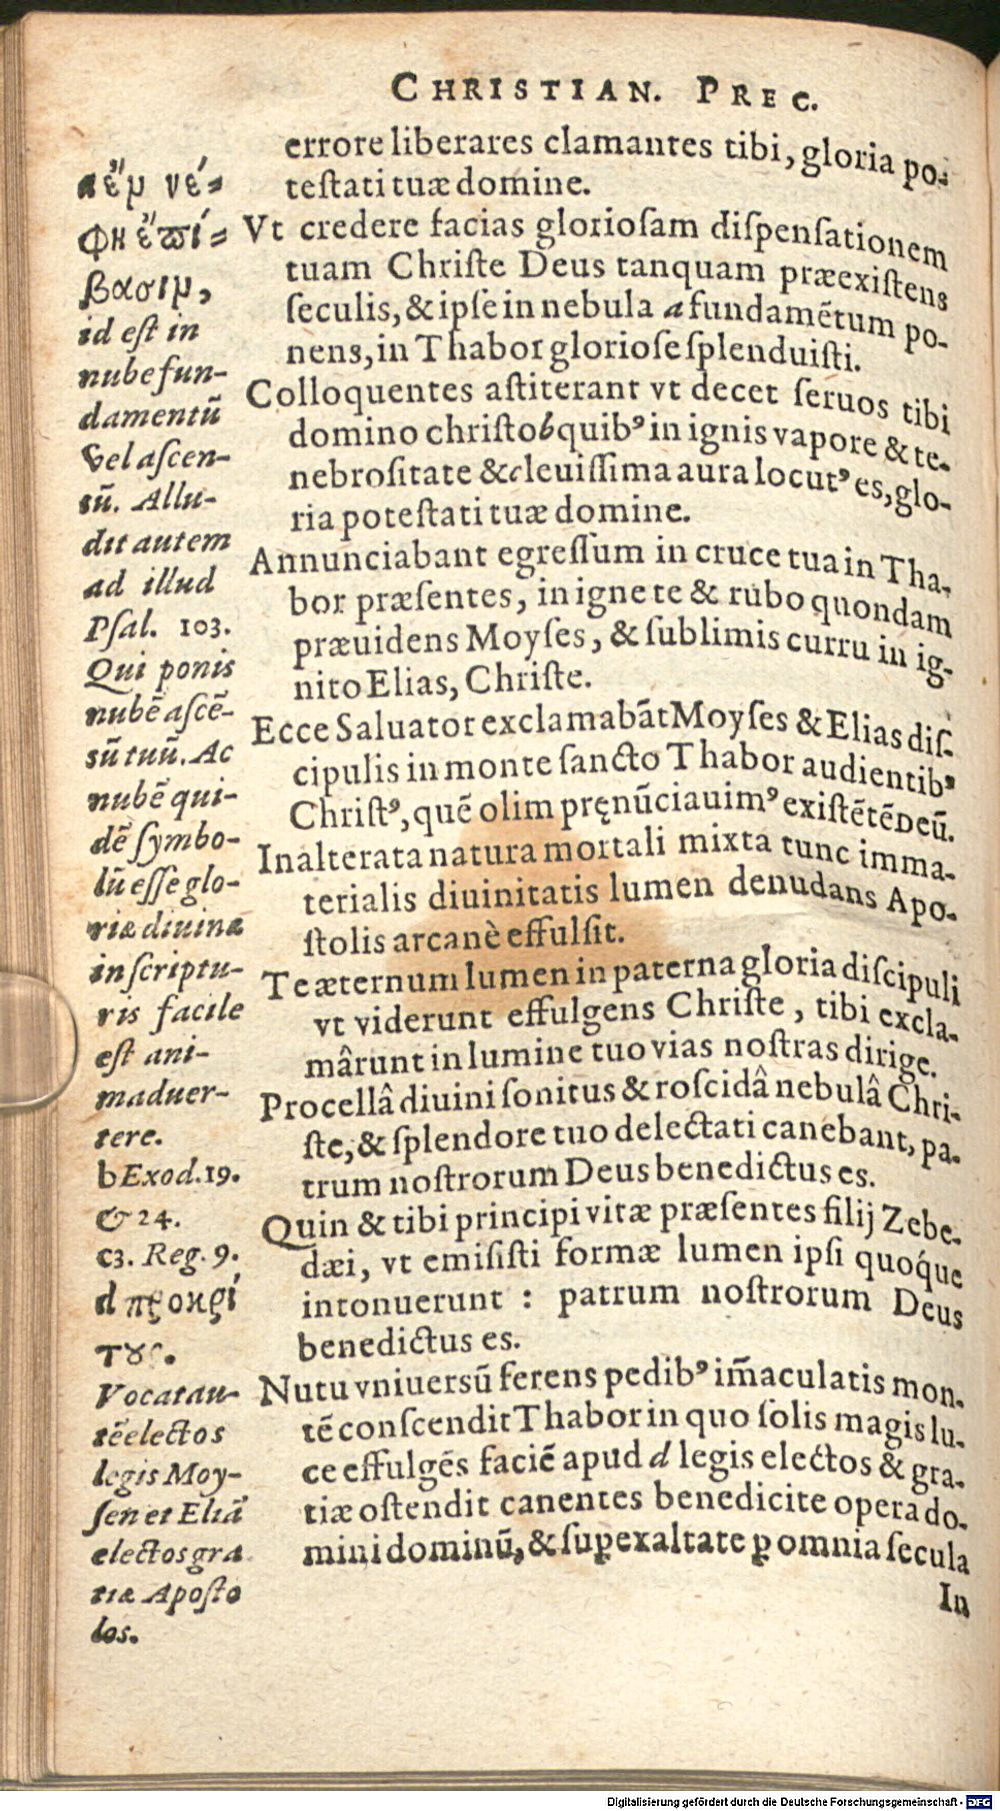 CHRISTIAN. PREC.
errore liberares clamantes tibi, gloria po-
testati tuæ domine.
Vt credere facias gloriosam dispensationem
tuam Christe Deus tanquam præexistens
seculis, & ipse in nebula a fundamētum po-
nens, in Thabor gloriose splenduisti.
Colloquentes astiterant vt decet seruos tibi
domino christo b quibꝰ in ignis vapore & te-
nebrositate & c leuissima aura locutꝰ es, glo-
ria potestati tuæ domine.
Annunciabant egressum in cruce tua in Tha-
bor præsentes, in igne te & rubo quondam
præuidens Moyses, & sublimis curru in ig-
nito Elias, Christe.
Ecce Saluator exclamabāt Moyses & Elias dis-
cipulis in monte sancto Thabor audientibꝰ
Christꝰ, quē olim pręnūciauimꝰ existētē Deū.
Inalterata natura mortali mixta tunc imma-
terialis diuinitatis lumen denudans Apo-
stolis arcanè effulsit.
Te æternum lumen in paterna gloria discipuli
vt viderunt effulgens Christe, tibi excla-
mârunt in lumine tuo vias nostras dirige.
Procellâ diuini sonitus & roscidâ nebulâ Chri-
ste, & splendore tuo delectati canebant, pa-
trum nostrorum Deus benedictus es.
Quin & tibi principi vitæ præsentes filij Zebe-
dæi, vt emisisti formæ lumen ipsi quoq́ue
intonuerunt : patrum nostrorum Deus
benedictus es.
Nutu vniuersū ferens pedibꝰ im̄aculatis mon-
tē conscendit Thabor in quo solis magis lu-
ce effulgēs faciē apud d legis electos & gra-
tiæ ostendit canentes benedicite opera do-
mini dominū, & suꝑexaltate ꝑ omnia secula
In
a ἔμ νέ-
φη ἔπί-
βασιμ,
id est in
nube fun-
damentū
vel ascen-
sū. Allu-
dit autem
ad illud
Psal. 103.
Qui ponis
nubē ascē-
sū tuū. Ac
nubē qui-
dē symbo-
lū esse glo-
riæ diuinæ
in scriptu-
ris facile
est ani-
maduer-
tere.
b Exod. 19.
& 24.
c 3. Reg. 9.
d προκρί
τους.
Vocat au-
tē electos
legis Moy-
sen et Eliā
electos gra
tiæ Aposto
los.
Digitalisierung gefördert durch die Deutsche Forschungsgemeinschaft - DFG